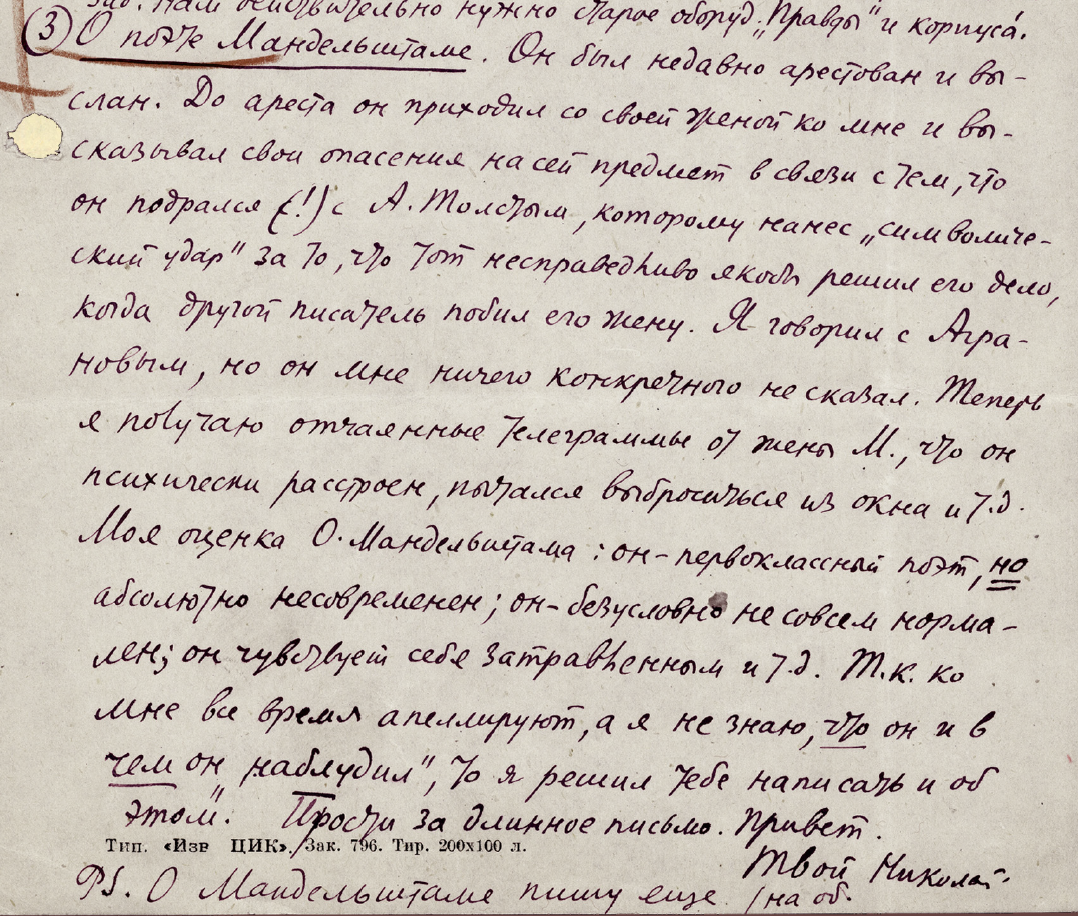 зав. Нам действительно нужно старое оборуд. „Правды" и корпуса!
③ О поэте Мандельштаме. Он был недавно арестован и вы-
слан. До ареста он приходил со своей женой ко мне и вы-
сказывал свои опасения на сей предмет в связи с тем, что
он подрался (!) с А. Толстым, которому нанес „символиче-
ский удар" за то, что тот несправедливо якобы решил его дело,
когда другой писатель побил его жену. Я говорил с Агра-
новым, но он мне ничего конкретного не сказал. Теперь
я получаю отчаянные телеграммы от жены М., что он
психически расстроен, пытался выброситься из окна и т.д.
Моя оценка О. Мандельштама: он – первоклассный поэт, но
абсолютно несовременен; он – безусловно не совсем норма-
лен; он чувствует себя затравленным и т.д. Т.к. ко
мне все время апеллируют, а я не знаю, что он и в
чем он „наблудил", то я решил тебе написать и об
этом. Прости за длинное письмо. Привет.
Тип. «Изв ЦИК». Зак. 796. Тир. 200х100 л.
Твой Николай.
PS. О Мандельштаме пишу еще /на об.